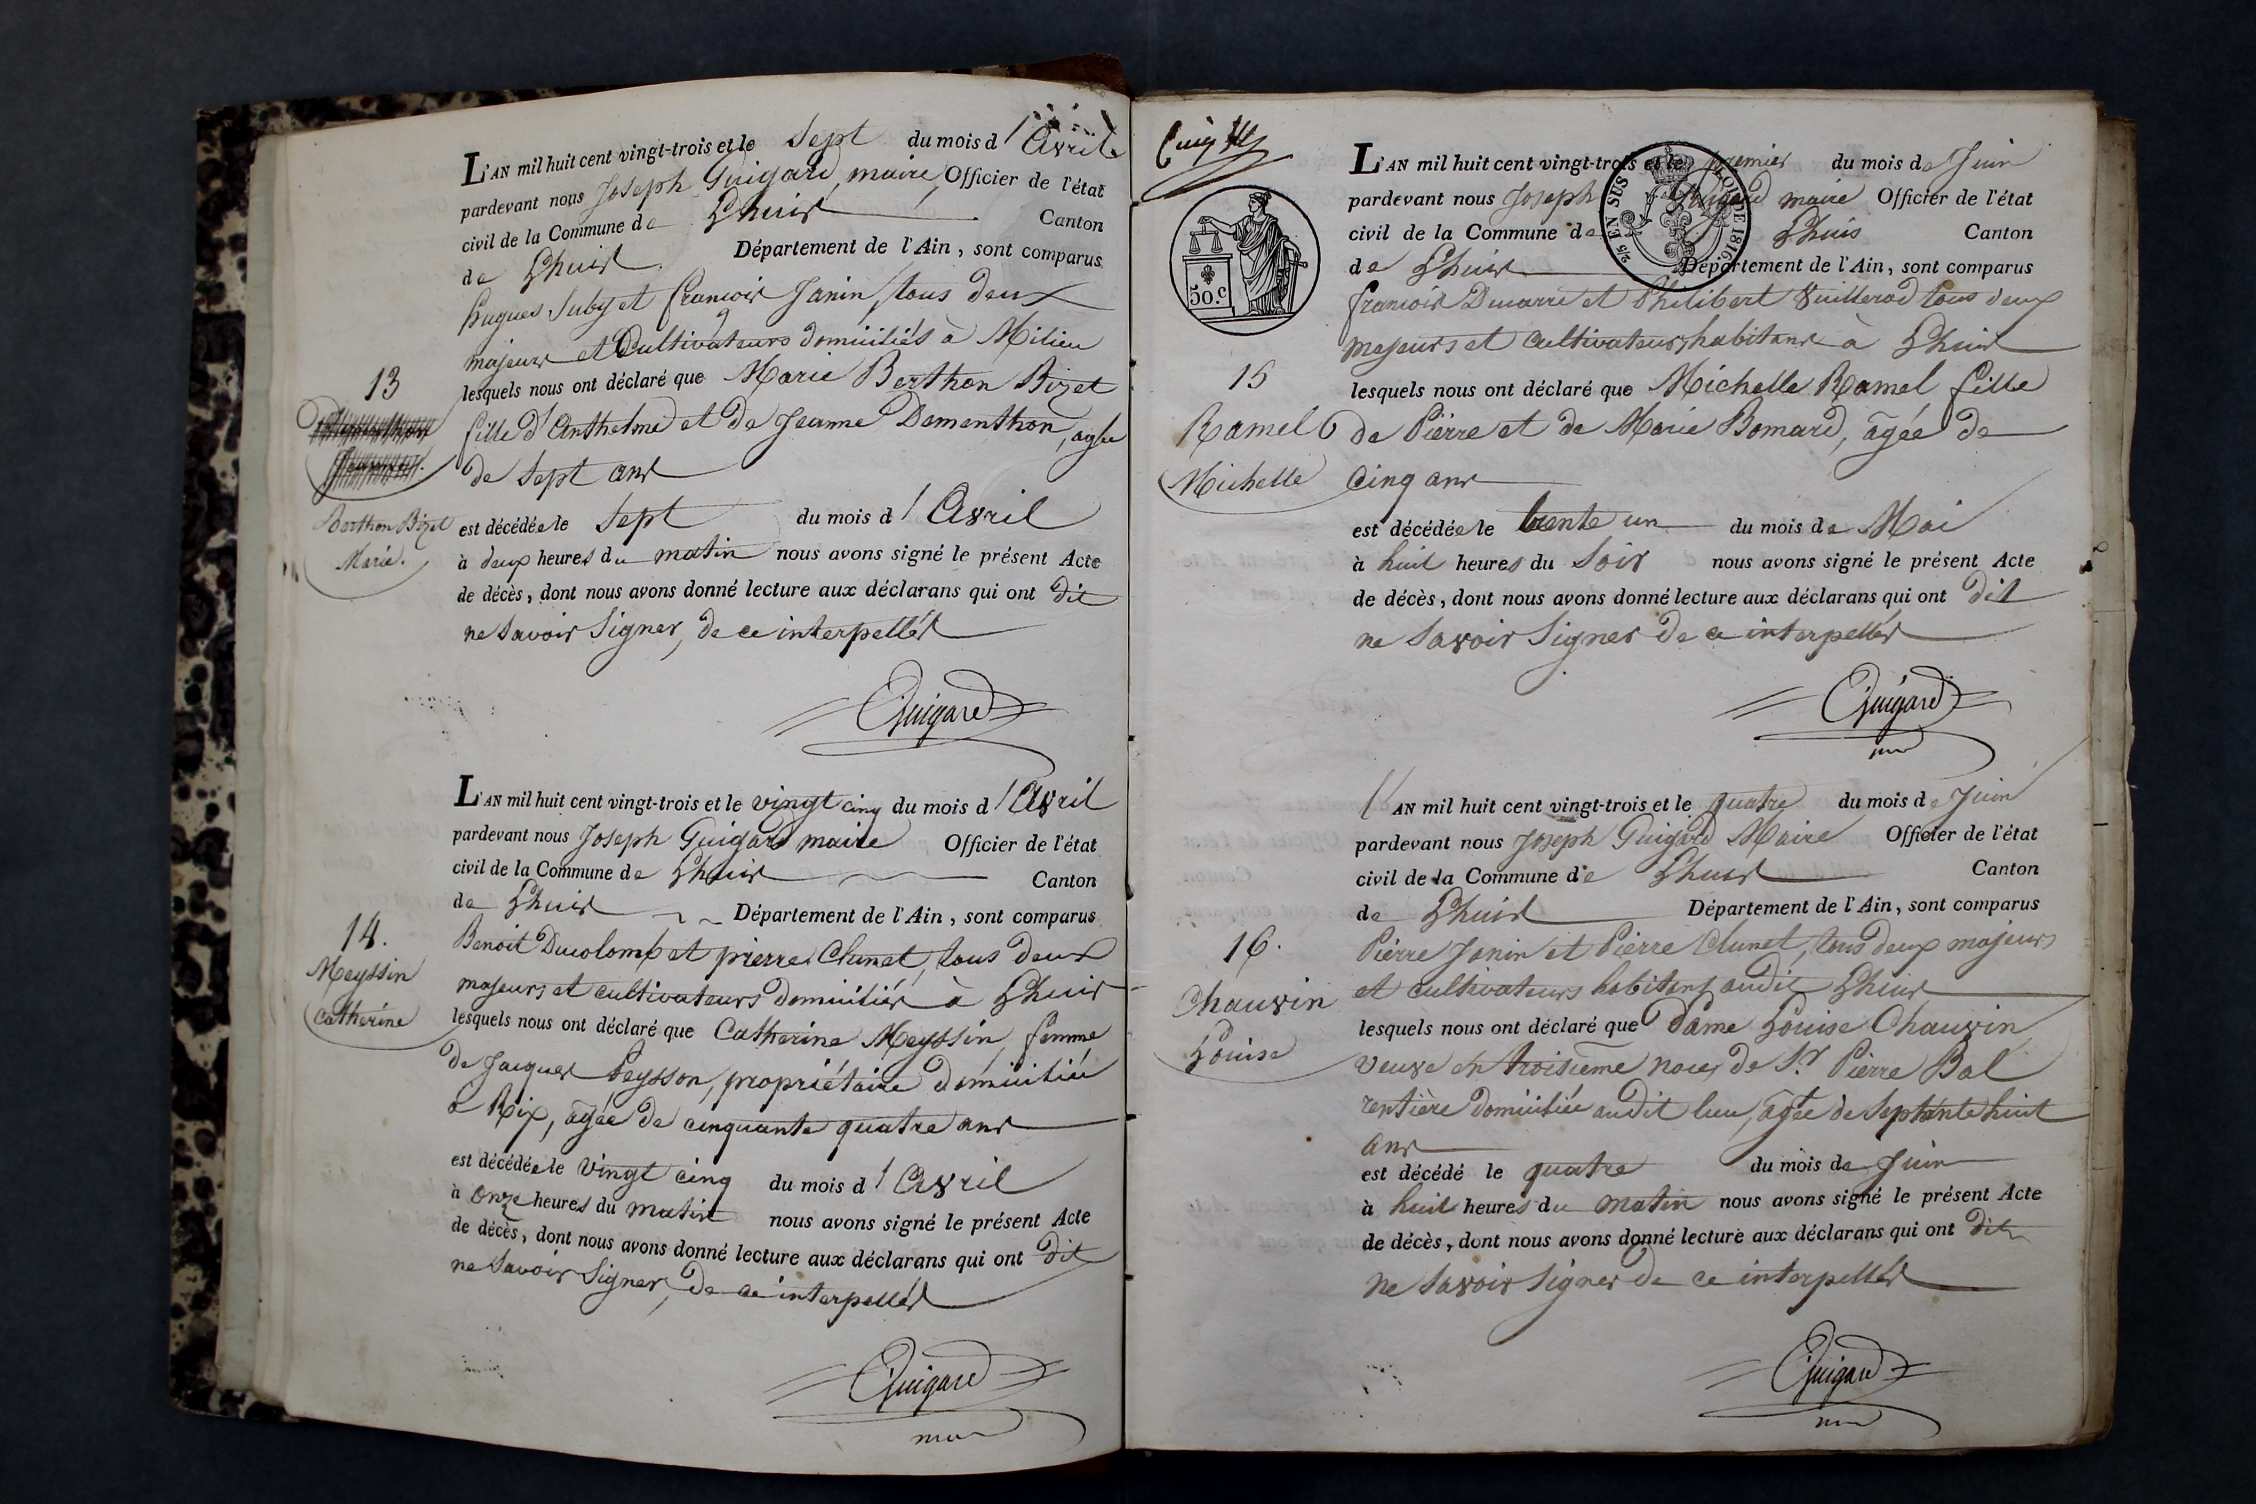 L'AN mil huit cent vingt-trois et le Sept du mois d'Avril
pardevant nous Joseph Guigard, maire, Officier de l'état
civil de la Commune de Lhuis Canton
de Lhuis Département de l'Ain, sont comparus
hugues Suby et francois Janin, tous deux
majeurs et Cultivateurs domiciliés à Milieu
13
lesquels nous ont déclaré que Marie Berthon Bizet
fille d'Anthelme et de Jeanne Dementhon, agée
de Sept ans
Berthon Bizet
Marie.
est décédée le Sept du mois d'Avril
à deux heures du matin nous avons signé le présent Acte
de décès, dont nous avons donné lecture aux déclarans qui ont dit
ne Savoir Signer, de ce interpellés
Guigard
L'AN mil huit cent vingt-trois et le vingt cinq du mois d'Avril
pardevant nous Joseph Guigard maire Officier de l'état
civil de la Commune de Lhuis Canton
de Lhuis Département de l'Ain, sont comparus
14.
Meyssin
Catherine
Benoit Ducolomb et pierre Chunet, tous deux
majeurs et cultivateurs domiciliés à Lhuis
lesquels nous ont déclaré que Catherine Meyssin, femme
de Jacques Peysson, propriétaire domiciliée
à Rix, agée de cinquante quatre ans
est décédée le vingt cinq du mois d'Avril
à onze heures du matin nous avons signé le présent Acte
de décès, dont nous avons donné lecture aux déclarans qui ont dit
ne Savoir Signer, de ce interpellés
Guigard
50.c
2/5 EN SUS LOI DE 1816
L'AN mil huit cent vingt-trois et le premier du mois de Juin
pardevant nous Joseph Guigard maire Officier de l'état
civil de la Commune de Lhuis Canton
de Lhuis Département de l'Ain, sont comparus
francois Ducarre et Philibert Vuillerod tous deux
majeurs et Cultivateurs habitans à Lhuis
15
Ramel
Michelle
lesquels nous ont déclaré que Michelle Ramel fille
de Pierre et de Marie Bomard, agée de
Cinq ans
est décédée le trente un du mois de Mai
à huit heures du Soir nous avons signé le présent Acte
de décès, dont nous avons donné lecture aux déclarans qui ont dit
ne Savoir Signer de ce interpellés
Guigard
L'AN mil huit cent vingt-trois et le quatre du mois de Juin
pardevant nous Joseph Guigard Maire Officier de l'état
civil de la Commune de Lhuis Canton
de Lhuis Département de l'Ain, sont comparus
16.
Chauvin
Louise
Pierre Janin et Pierre Chunet, tous deux majeurs
et Cultivateurs habitans audit Lhuis
lesquels nous ont déclaré que Dame Louise Chauvin
veuve en troisième noces de Sr Pierre Bal
rentière domiciliée audit lieu, agée de Septante huit
ans
est décédé le quatre du mois de Juin
à huit heures du matin nous avons signé le présent Acte
de décès, dont nous avons donné lecture aux déclarans qui ont dit
ne Savoir Signer de ce interpellés
Guigard